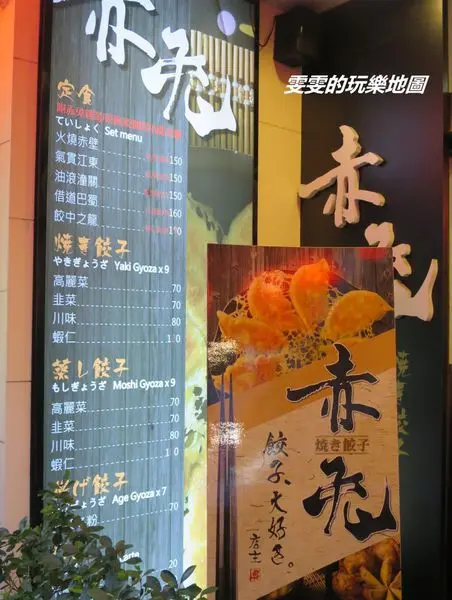 赤飛
雯雯的玩樂地圖
定食
ていしょく Set menu
火燒赤壁 150
氣貫江東 150
油滾潼關 150
借道巴蜀 160
餃中之龍
焼き餃子
やきぎょうざ Yaki Gyoza x 9
高麗菜 70
韭菜 70
川味 80
蝦仁
蒸し餃子
もしぎょうざ Moshi Gyoza x 9
高麗菜 70
韭菜 70
川味 80
蝦仁
げ餃子
ょうざ Age Gyoza x 7
粉 70
20
赤飛
赤飛
焼き餃子
餃子、大好き。
店主